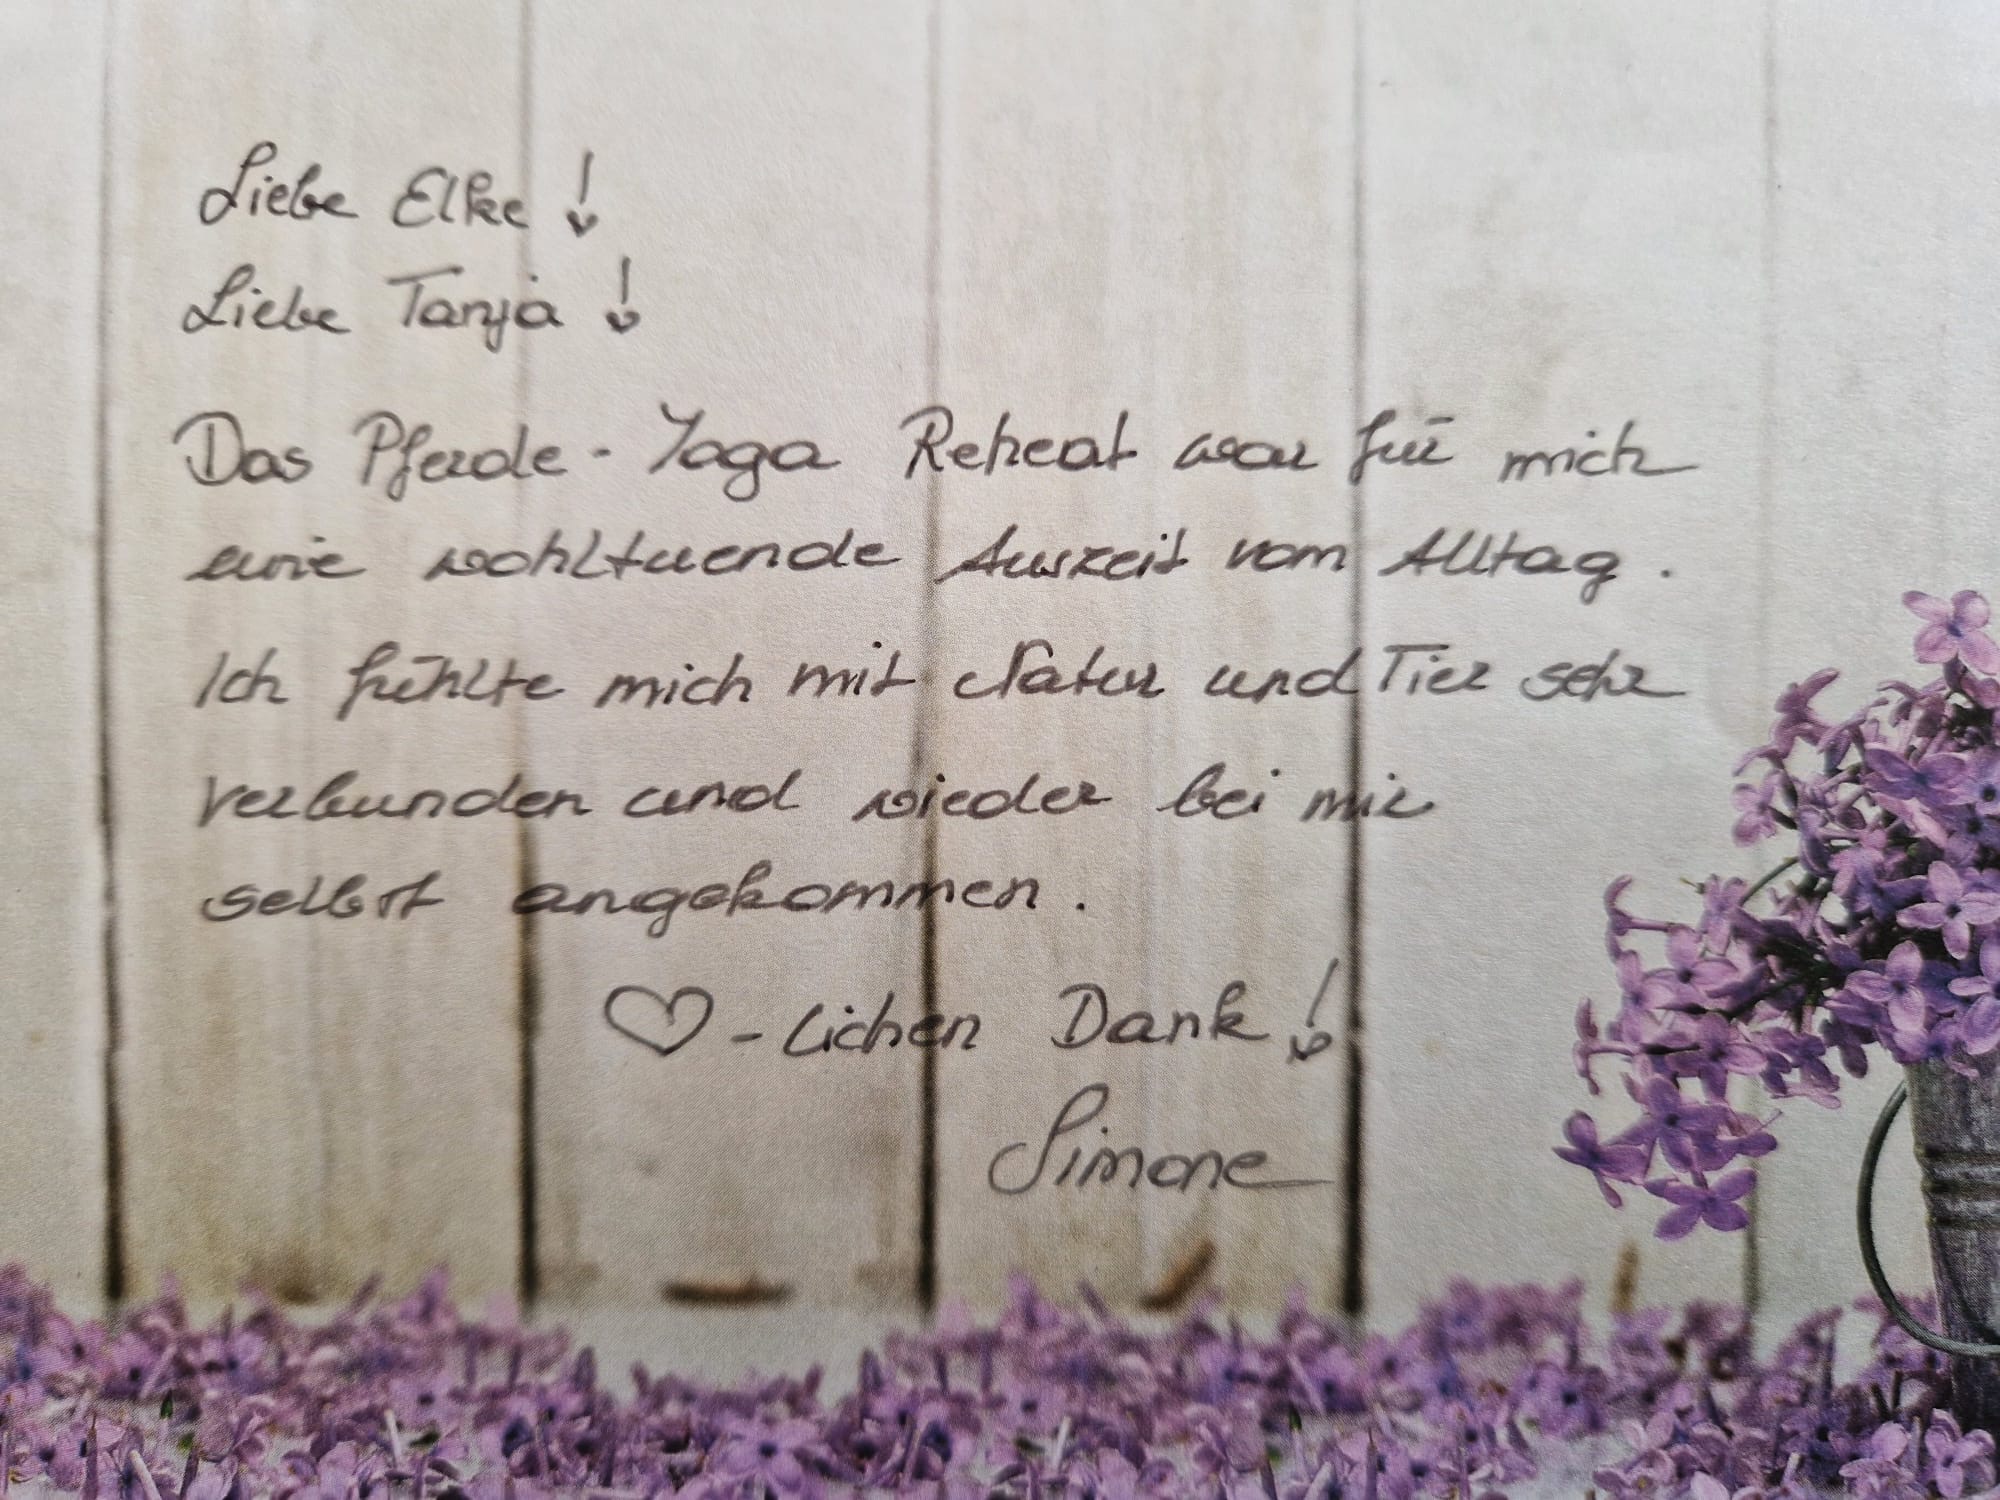 Liebe Elke !
Liebe Tanja !
Das Pferde - Yoga Retreat war für mich
eine wohltuende Auszeit vom Alltag .
Ich fühlte mich mit Natur und Tier sehr
verbunden und wieder bei mir
selbst angekommen .
♡ - lichen Dank !
Simone